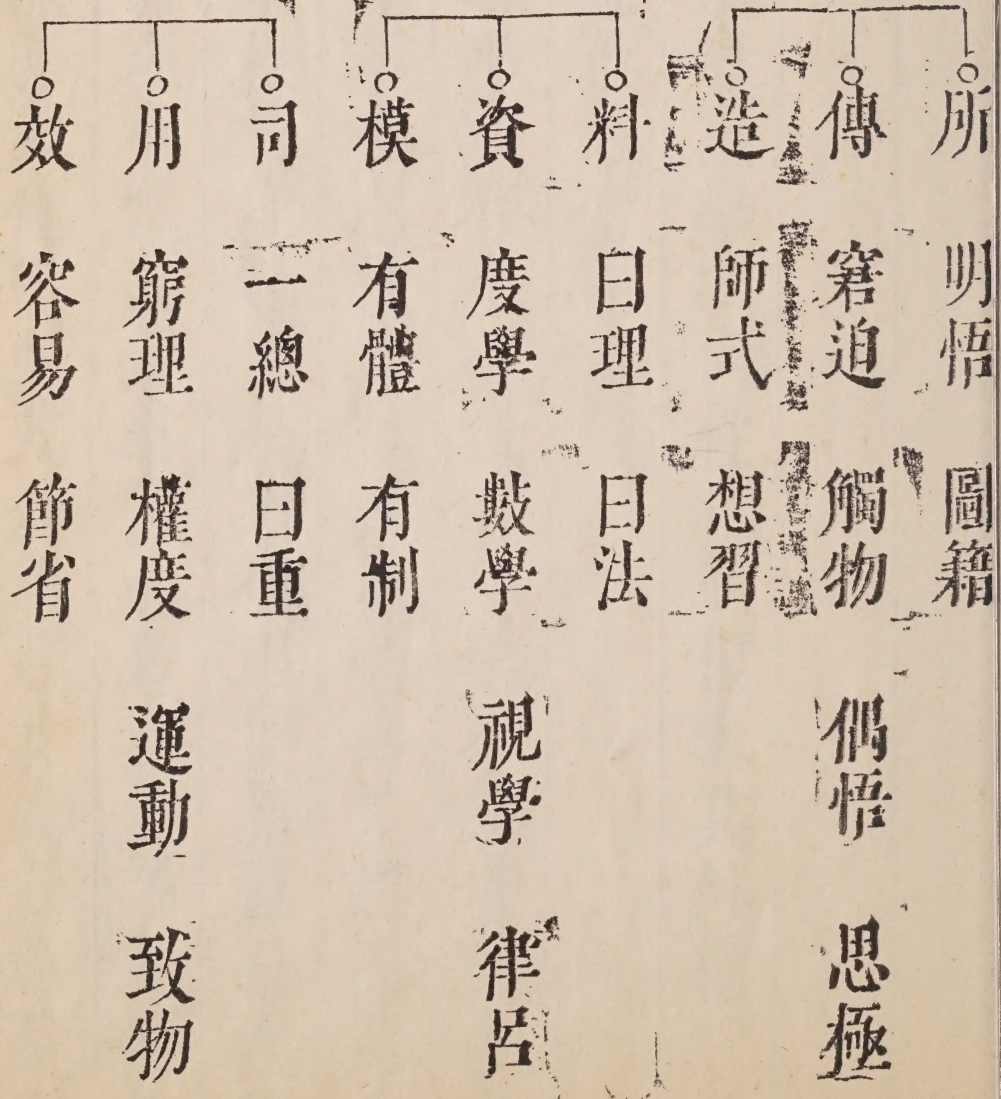 所 明悟 圖籍
傳 窘迫 觸物 偶悟 思極
造 師式 想習
料 曰理 曰法
資 度學 數學 視學 律呂
模 有體 有制
司 一總 曰重
用 窮理 權度 運動 致物
效 容易 節省